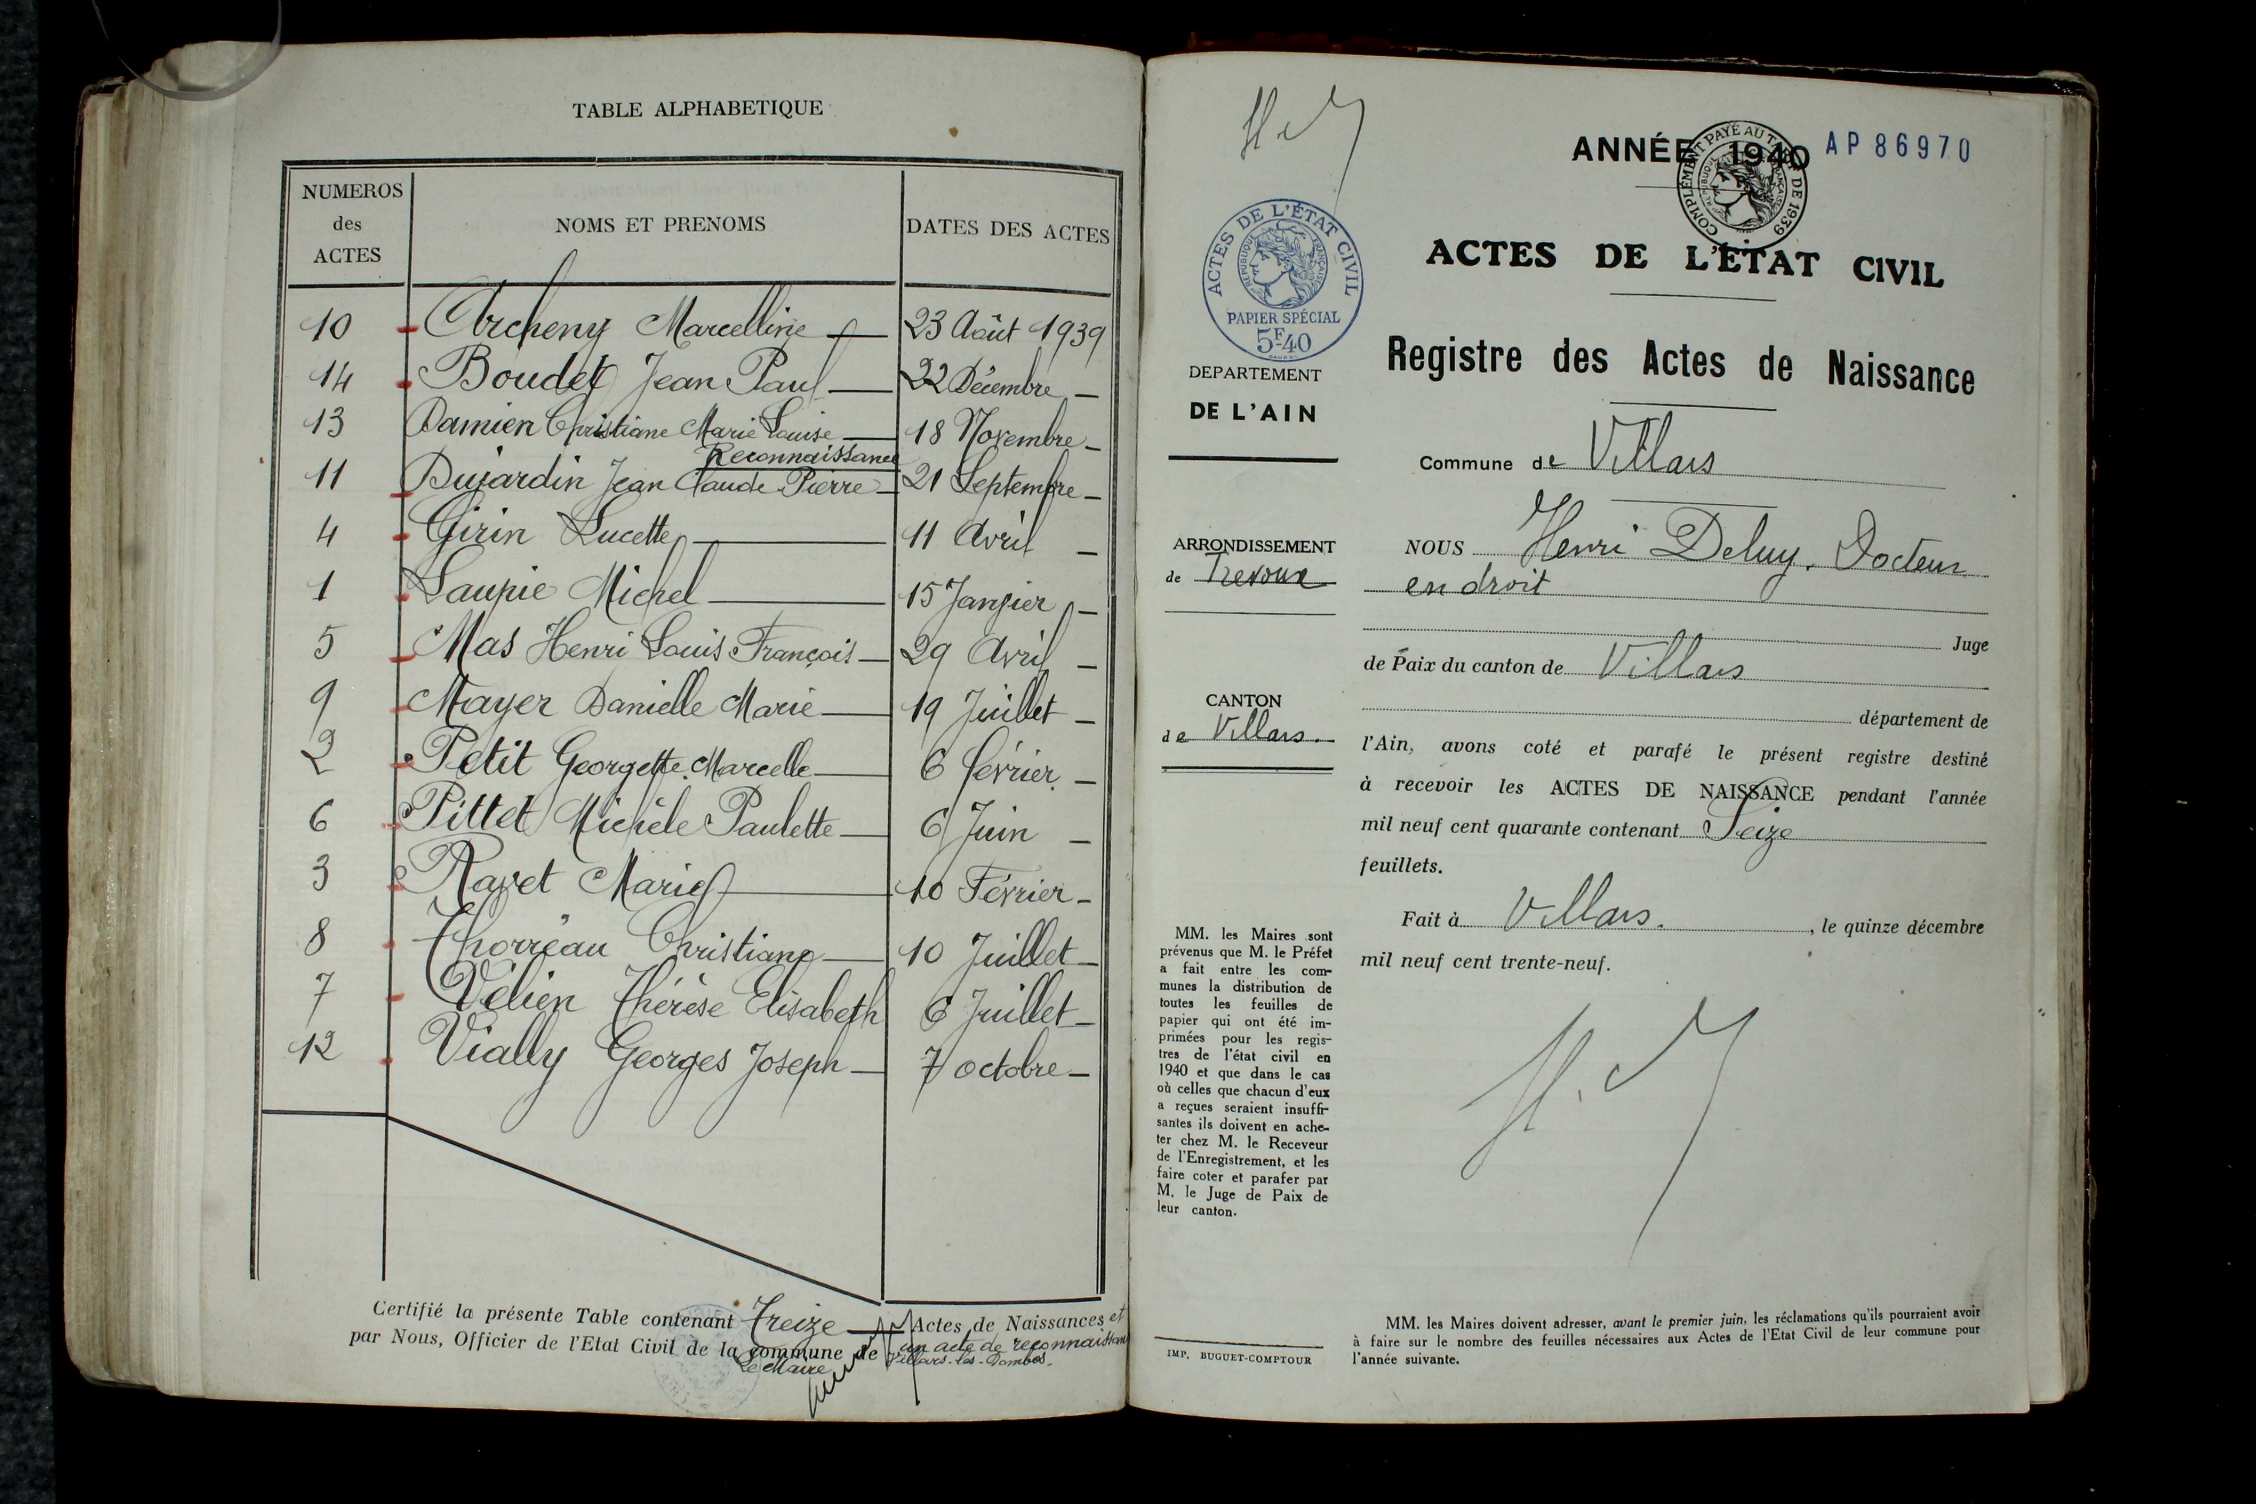 TABLE ALPHABETIQUE
NUMEROS des ACTES
NOMS ET PRENOMS
DATES DES ACTES
10 Archeny Marcelline 23 Août 1939
14 Boudet Jean Paul 22 Décembre
13 Damien Christiane Marie Louise 18 Novembre
Reconnaissance
11 Dujardin Jean Claude Pierre 21 Septembre
4 Girin Lucette 11 Avril
1 Laupie Michel 15 Janvier
5 Mas Henri Louis François 29 Avril
9 Mayer Danielle Marie 19 Juillet
2 Petit Georgette Marcelle 6 février
6 Pittet Michèle Paulette 6 Juin
3 Ravet Marie 10 Février
8 Thorreau Christiane 10 Juillet
7 Vélien Thérèse Elisabeth 6 Juillet
12 Vially Georges Joseph 7 octobre
Certifié la présente Table contenant Treize Actes de Naissances et
un acte de reconnaissance
par Nous, Officier de l'Etat Civil de la commune de Villars-les-Dombes.
Le Maire
H.
ANNÉE 1940 AP 86970
COMPLÉMENT PAYÉ AU TARIF DE 1939
RÉPUBLIQUE FRANÇAISE
ACTES DE L'ÉTAT CIVIL
RÉPUBLIQUE FRANÇAISE
PAPIER SPÉCIAL
5F.40
ACTES DE L'ÉTAT CIVIL
Registre des Actes de Naissance
DEPARTEMENT
DE L'AIN
Commune de Villars
ARRONDISSEMENT
de Trevoux
CANTON
de Villars.
NOUS Henri Deluy. Docteur
en droit
Juge
de Paix du canton de Villars
département de
l'Ain, avons coté et parafé le présent registre destiné
à recevoir les ACTES DE NAISSANCE pendant l'année
mil neuf cent quarante contenant Seize
feuillets.
Fait à Villars. , le quinze décembre
mil neuf cent trente-neuf.
H.
MM. les Maires sont
prévenus que M. le Préfet
a fait entre les com-
munes la distribution de
toutes les feuilles de
papier qui ont été im-
primées pour les regis-
tres de l'état civil en
1940 et que dans le cas
où celles que chacun d'eux
a reçues seraient insuffi-
santes ils doivent en ache-
ter chez M. le Receveur
de l'Enregistrement, et les
faire coter et parafer par
M. le Juge de Paix de
leur canton.
IMP. BUGUET-COMPTOUR
MM. les Maires doivent adresser, avant le premier juin, les réclamations qu'ils pourraient avoir
à faire sur le nombre des feuilles nécessaires aux Actes de l'Etat Civil de leur commune pour
l'année suivante.